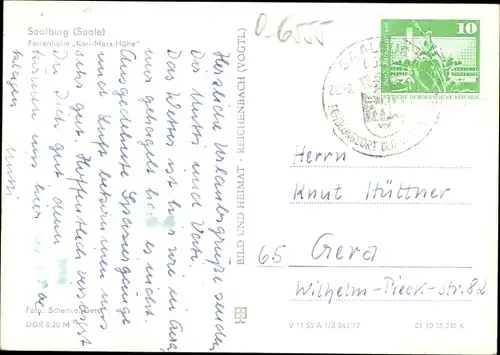 Saalburg (Saale)
Ferienheim „Karl-Marx-Höhe"
Herzliche Urlaubsgrüße senden
Dir Mutti und Vati.
Das Wetter ist hier wie in Gera
nur gehagelt hat es nicht.
Ausgedehnte Spaziergänge
und Luft bekommen uns
sehr gut. Hoffentlich versorgst
Du Dich gut denn
können uns hier
Mutti
Foto: Schenke, Gera
DDR 0,20 M
BILD UND HEIMAT · REICHENBACH (VOGTL)
0-6555
10
DEUTSCHE DEMOKRATISCHE REPUBLIK
SAALBURG
Herrn
Knut Hüttner
65 Gera
Wilhelm-Pieck-Str. 82
V 11 50 A 1/B 243/77
01 10 08 246 K